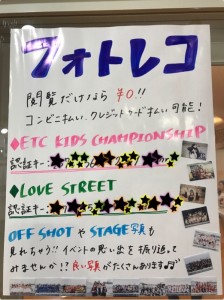 フォトレコ
閲覧だけなら ¥0!!
コンビニ払い、クレジットカード払い可能!
◆ETC KIDS CHAMPIONSHIP
認証キー:
◆LOVE STREET
認証キー:
OFF SHOT や STAGE写真も
見れちゃう!! イベントの思い出を振り返って
みませんか!? 良い写真がたくさんあります♫